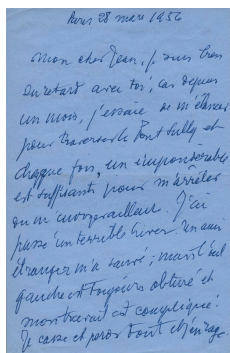 Paris 28 mars 1956
Mon cher Jean, je suis bien
en retard avec toi, car depuis
un mois, j'essaie de m'élancer
pour traverser le Pont Sully et
chaque fois, un impondérable
est suffisant pour m'arrêter
ou m'
passé un terrible hiver. Un ami
étranger m'a sauvé ; mais l'œil
gauche est toujours obturé et
mon travail est compliqué !
Je casse et perds tout